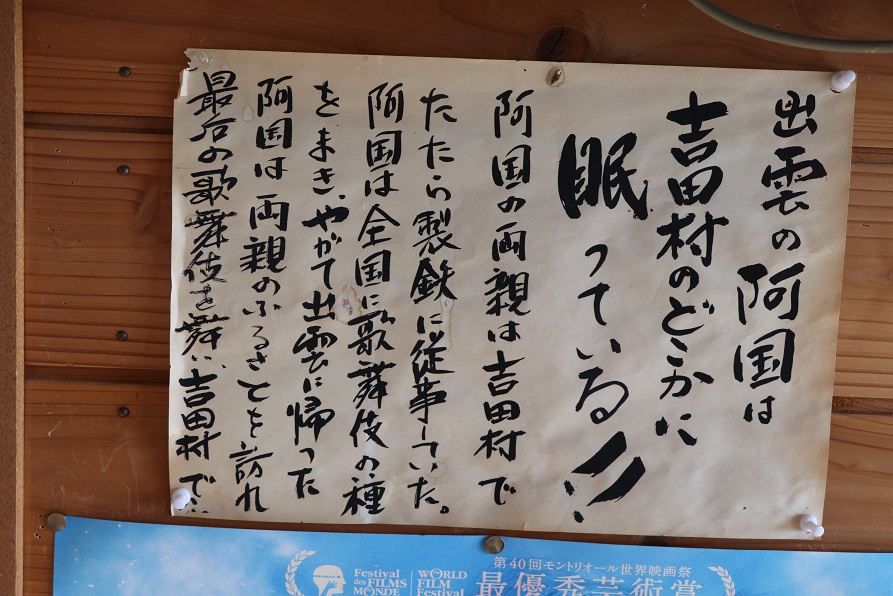 出雲の阿国は
吉田村のどこかに
眠っている!!
阿国の両親は吉田村で
たたら製鉄に従事していた。
阿国は全国に歌舞伎の種
をまき、やがて出雲に帰った
阿国は両親のふるさとを訪れ
最后の歌舞伎を舞い吉田村で…
第40回モントリオール世界映画祭
Festival des FILMS MONDE
WORLD FILM Festival
最優秀芸術賞